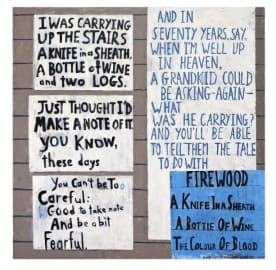 I WAS CARRYING
UP THE STAIRS
A KNIFE in a SHEATH,
A BOTTLE of WINE
and TWO LOGS.
JUST THOUGHT I'D
MAKE A NOTE OF IT.
YOU KNOW,
these days
You Can't be Too
Careful:
Good to take note
And be a bit
Fearful.
AND IN
SEVENTY YEARS, SAY,
WHEN I'M WELL UP
IN HEAVEN,
A GRANDKID COULD
BE ASKING-AGAIN-
WHAT
WAS HE CARRYING?
AND YOU'LL BE ABLE
TO TELL THEM THE TALE
TO DO WITH
FIREWOOD
A KNIFE IN A SHEATH
A BOTTLE OF WINE
THE COLOUR OF BLOOD